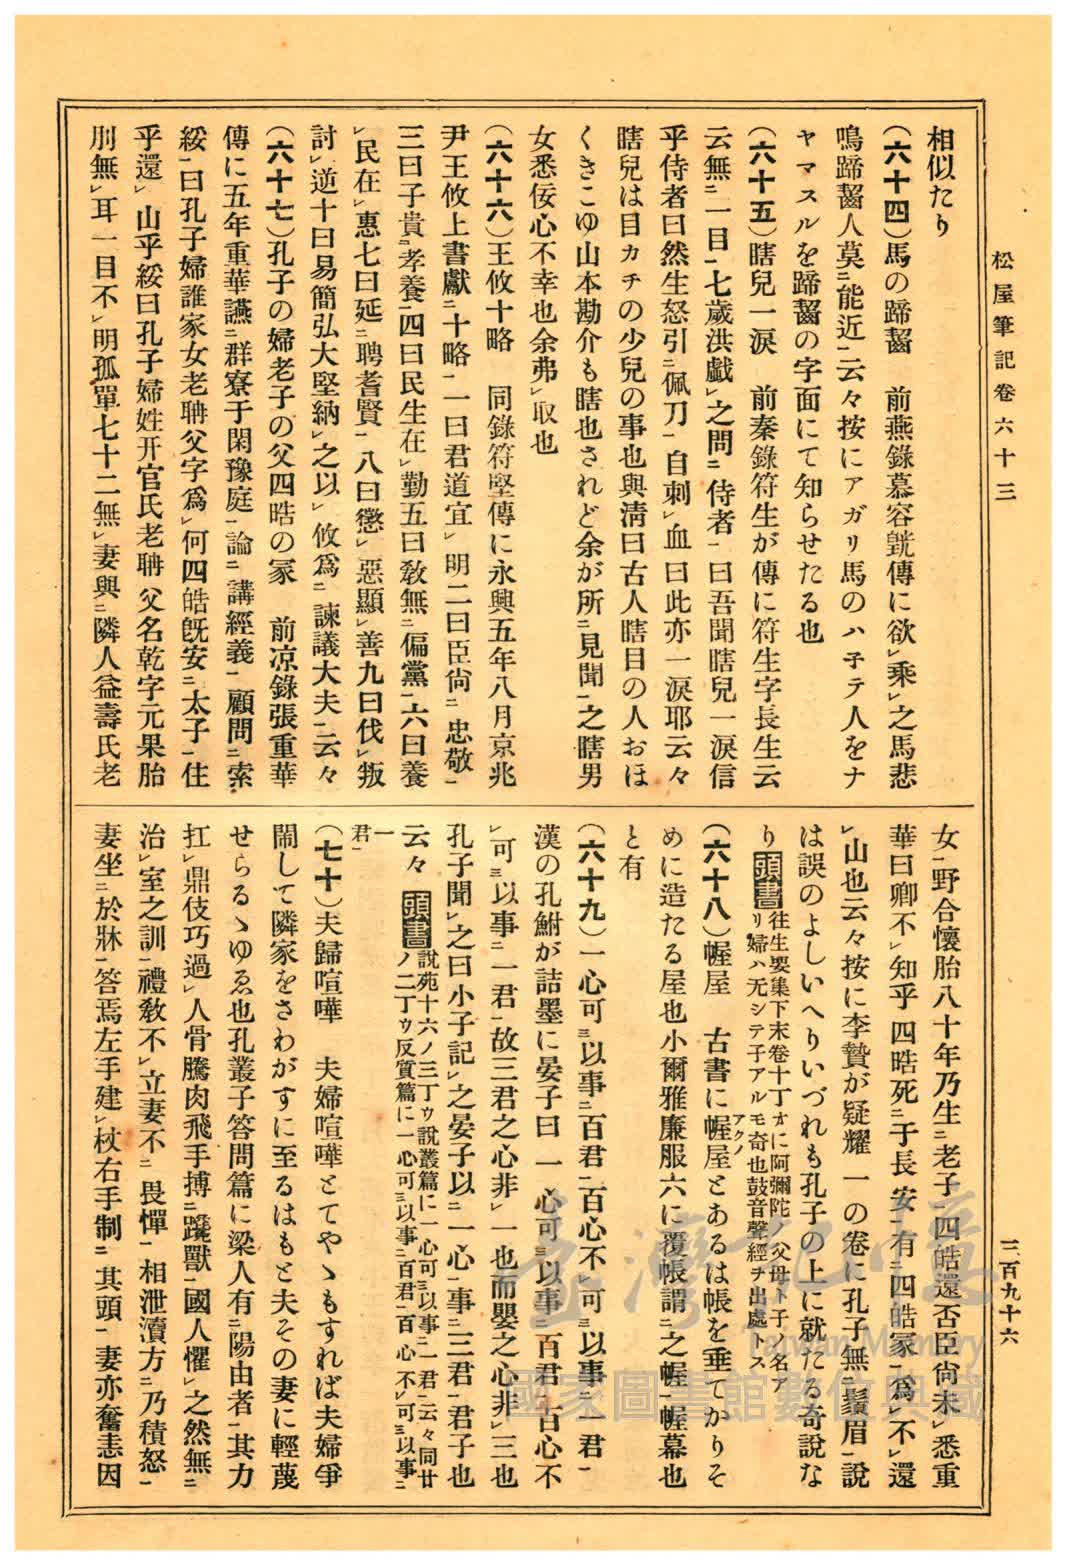 松屋筆記卷六十三
相似たり
(六十四)馬の蹄齧　前燕錄慕容皝傳に欲㆑乘㆑之馬悲
鳴蹄齧人莫㆓能近㆒云々按にアガリ馬のハ子テ人をナ
ヤマスルを蹄齧の字面にて知らせたる也
(六十五)瞎兒一淚　前秦錄符生が傳に符生字長生云
云無㆓一目㆒七歲洪戱㆑之問㆓侍者㆒曰吾聞瞎兒一淚信
乎侍者曰然生怒引㆓佩刀㆒自刺㆑血曰此亦一淚耶云々
瞎兒は目カチの少兒の事也與淸曰古人瞎目の人おほ
くきこゆ山本勘介も瞎也されど余が所㆓見聞㆒之瞎男
女悉佞心不幸也余弗㆑取也
(六十六)王攸十略　同錄符堅傳に永興五年八月京兆
尹王攸上書獻㆓十略㆒一曰君道宜㆑明二曰臣尙㆓忠敬㆒
三曰子貴㆓孝養㆒四曰民生在㆑勤五曰敎無㆓偏黨㆒六曰養
㆑民在㆑惠七曰延㆓聘耆賢㆒八曰懲㆑惡顯㆑善九曰伐㆑叛
討㆑逆十曰易簡弘大堅納㆑之以㆑攸爲㆓諫議大夫㆒云々
(六十七)孔子の婦老子の父四皓の冢　前凉錄張重華
傳に五年重華讌㆓群寮于閑豫庭㆒論㆓講經義㆒顧問㆓索
綏㆒曰孔子婦誰家女老聃父字爲㆑何四皓旣安㆓太子㆒住
乎還㆑山乎綏曰孔子婦姓亓官氏老聃父名乾字元果胎
刖無㆑耳一目不㆑明孤單七十二無㆑妻與㆓隣人益壽氏老
女㆒野合懷胎八十年乃生㆓老子㆒四皓還否臣尙未㆑悉重
華曰卿不㆑知乎四皓死㆓于長安㆒有㆓四皓冢㆒爲㆑不㆑還
㆑山也云々按に李贄が疑耀一の卷に孔子無㆓鬚眉㆒說
は誤のよしいへりいづれも孔子の上に就たる奇說な
り頭書往生要集下末卷十丁オに阿彌陀ノ父母ト子ノ名ア
リ婦ハ无シテ子アルモ奇也鼓音聲經ヲ出處トス
(六十八)幄屋　古書に幄屋アクノとあるは帳を垂てかりそ
めに造たる屋也小爾雅廉服六に覆帳謂㆓之幄㆒幄幕也
と有
(六十九)一心可㆔以事㆓百君㆒百心不㆑可㆔以事㆓一君㆒
漢の孔鮒が詰墨に晏子曰一心可㆔以事㆓百君㆒百心不
㆑可㆔以事㆓一君㆒故三君之心非㆑一也而嬰之心非㆑三也
孔子聞㆑之曰小子記㆑之晏子以㆓一心㆒事㆓三君㆒君子也
云々　頭書說苑十六ノ三丁ウ說叢篇に一心可㆔以事㆓一君㆒云々同廿
ノ二丁ウ反質篇に一心可㆔以事㆓百君㆒百心不㆑可㆔以事㆓
一
君㆒
(七十)夫歸喧嘩　夫婦喧嘩とてやゝもすれば夫婦爭
鬧して隣家をさわがすに至るはもと夫その妻に輕蔑
せらるゝゆゑ也孔叢子答問篇に梁人有㆓陽由者㆒其力
扛㆑鼎伎巧過㆑人骨騰肉飛手搏㆓蹺獸㆒國人懼㆑之然無㆓
治㆑室之訓㆒禮敎不㆑立妻不㆓畏憚㆒相泄瀆方㆓乃積怒㆒
妻坐㆓於牀㆒答焉左手建㆑杖右手制㆓其頭㆒妻亦奮恚因
三百九十六
臺灣記憶
Taiwan Memory
國家圖書館數位典藏